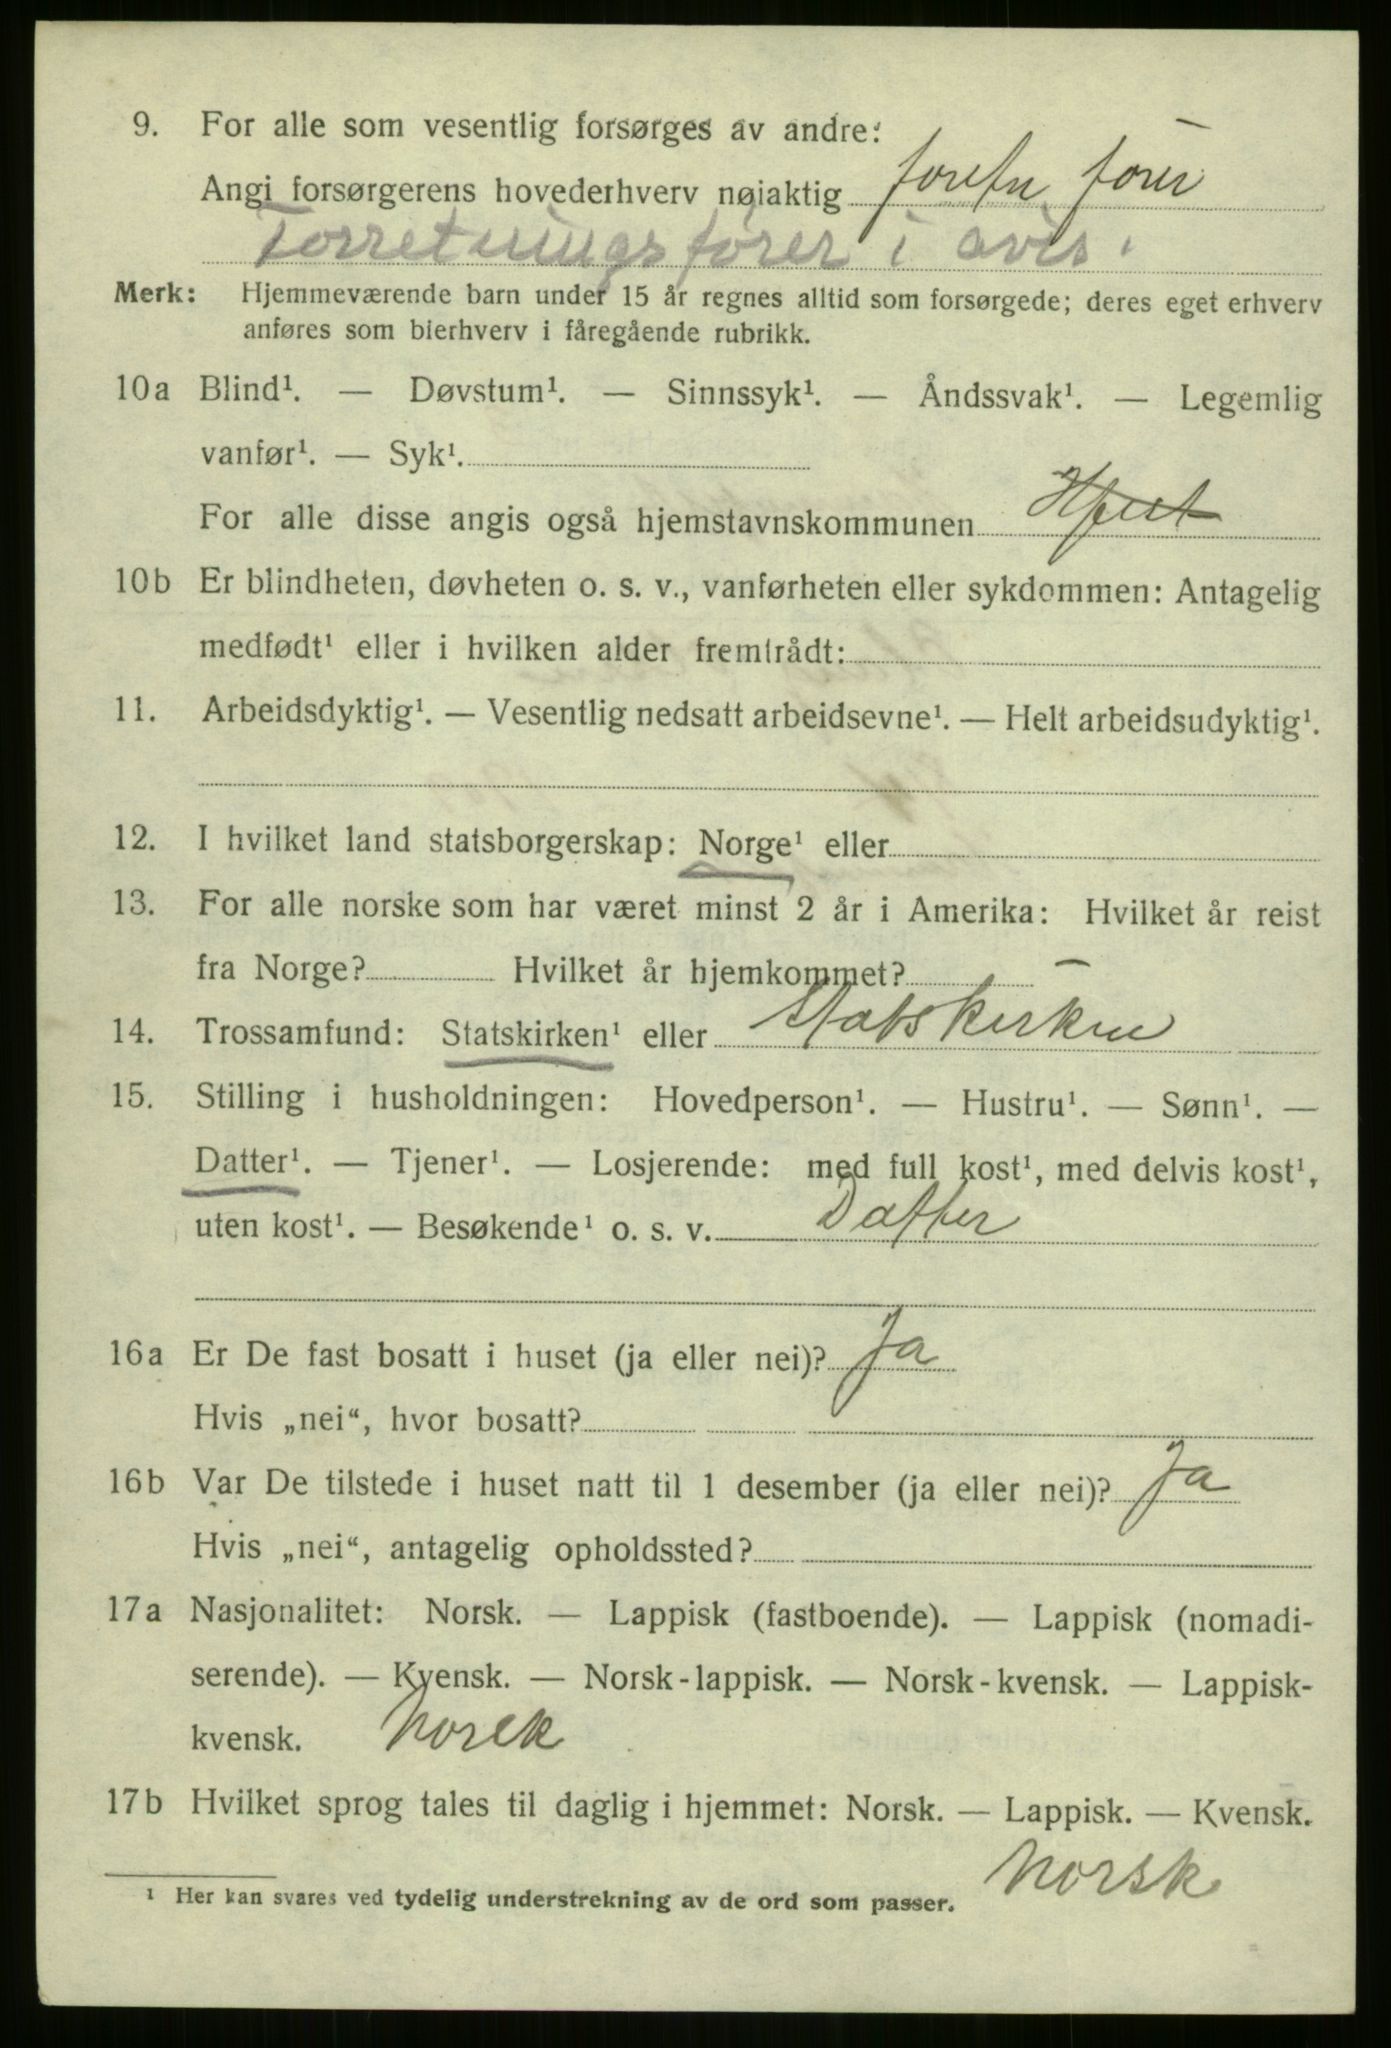 9. For alle som vesentlig forsørges av andre:
Angi forsørgerens hovederhverv nøiaktig forefn förer
Forretningsfører i avis.
Merk: Hjemmeværende barn under 15 år regnes alltid som forsørgede; deres eget erhverv
anføres som bierhverv i fåregående rubrikk.
10a Blind¹. — Døvstum¹. — Sinnssyk¹. — Åndssvak¹. — Legemlig
vanfør¹. — Syk¹.
For alle disse angis også hjemstavnskommunen
10b Er blindheten, døvheten o. s. v., vanførheten eller sykdommen: Antagelig
medfødt¹ eller i hvilken alder fremtrådt:
11. Arbeidsdyktig¹. — Vesentlig nedsatt arbeidsevne¹. — Helt arbeidsudyktig¹.
12. I hvilket land statsborgerskap: Norge¹ eller
13. For alle norske som har været minst 2 år i Amerika: Hvilket år reist
fra Norge? Hvilket år hjemkommet?
14. Trossamfund: Statskirken¹ eller Statskirken
15. Stilling i husholdningen: Hovedperson¹. — Hustru¹. — Sønn¹. —
Datter¹. — Tjener¹. — Losjerende: med full kost¹, med delvis kost¹,
uten kost¹. — Besøkende¹ o. s. v. Datter
16a Er De fast bosatt i huset (ja eller nei)? Ja
Hvis „nei“, hvor bosatt?
16b Var De tilstede i huset natt til 1 desember (ja eller nei)? Ja
Hvis „nei“, antagelig opholdssted?
17a Nasjonalitet: Norsk. — Lappisk (fastboende). — Lappisk (nomadi-
serende). — Kvensk. — Norsk-lappisk. — Norsk-kvensk. — Lappisk-
kvensk. Norsk
17b Hvilket sprog tales til daglig i hjemmet: Norsk. — Lappisk. — Kvensk.
Norsk
¹ Her kan svares ved tydelig understrekning av de ord som passer.